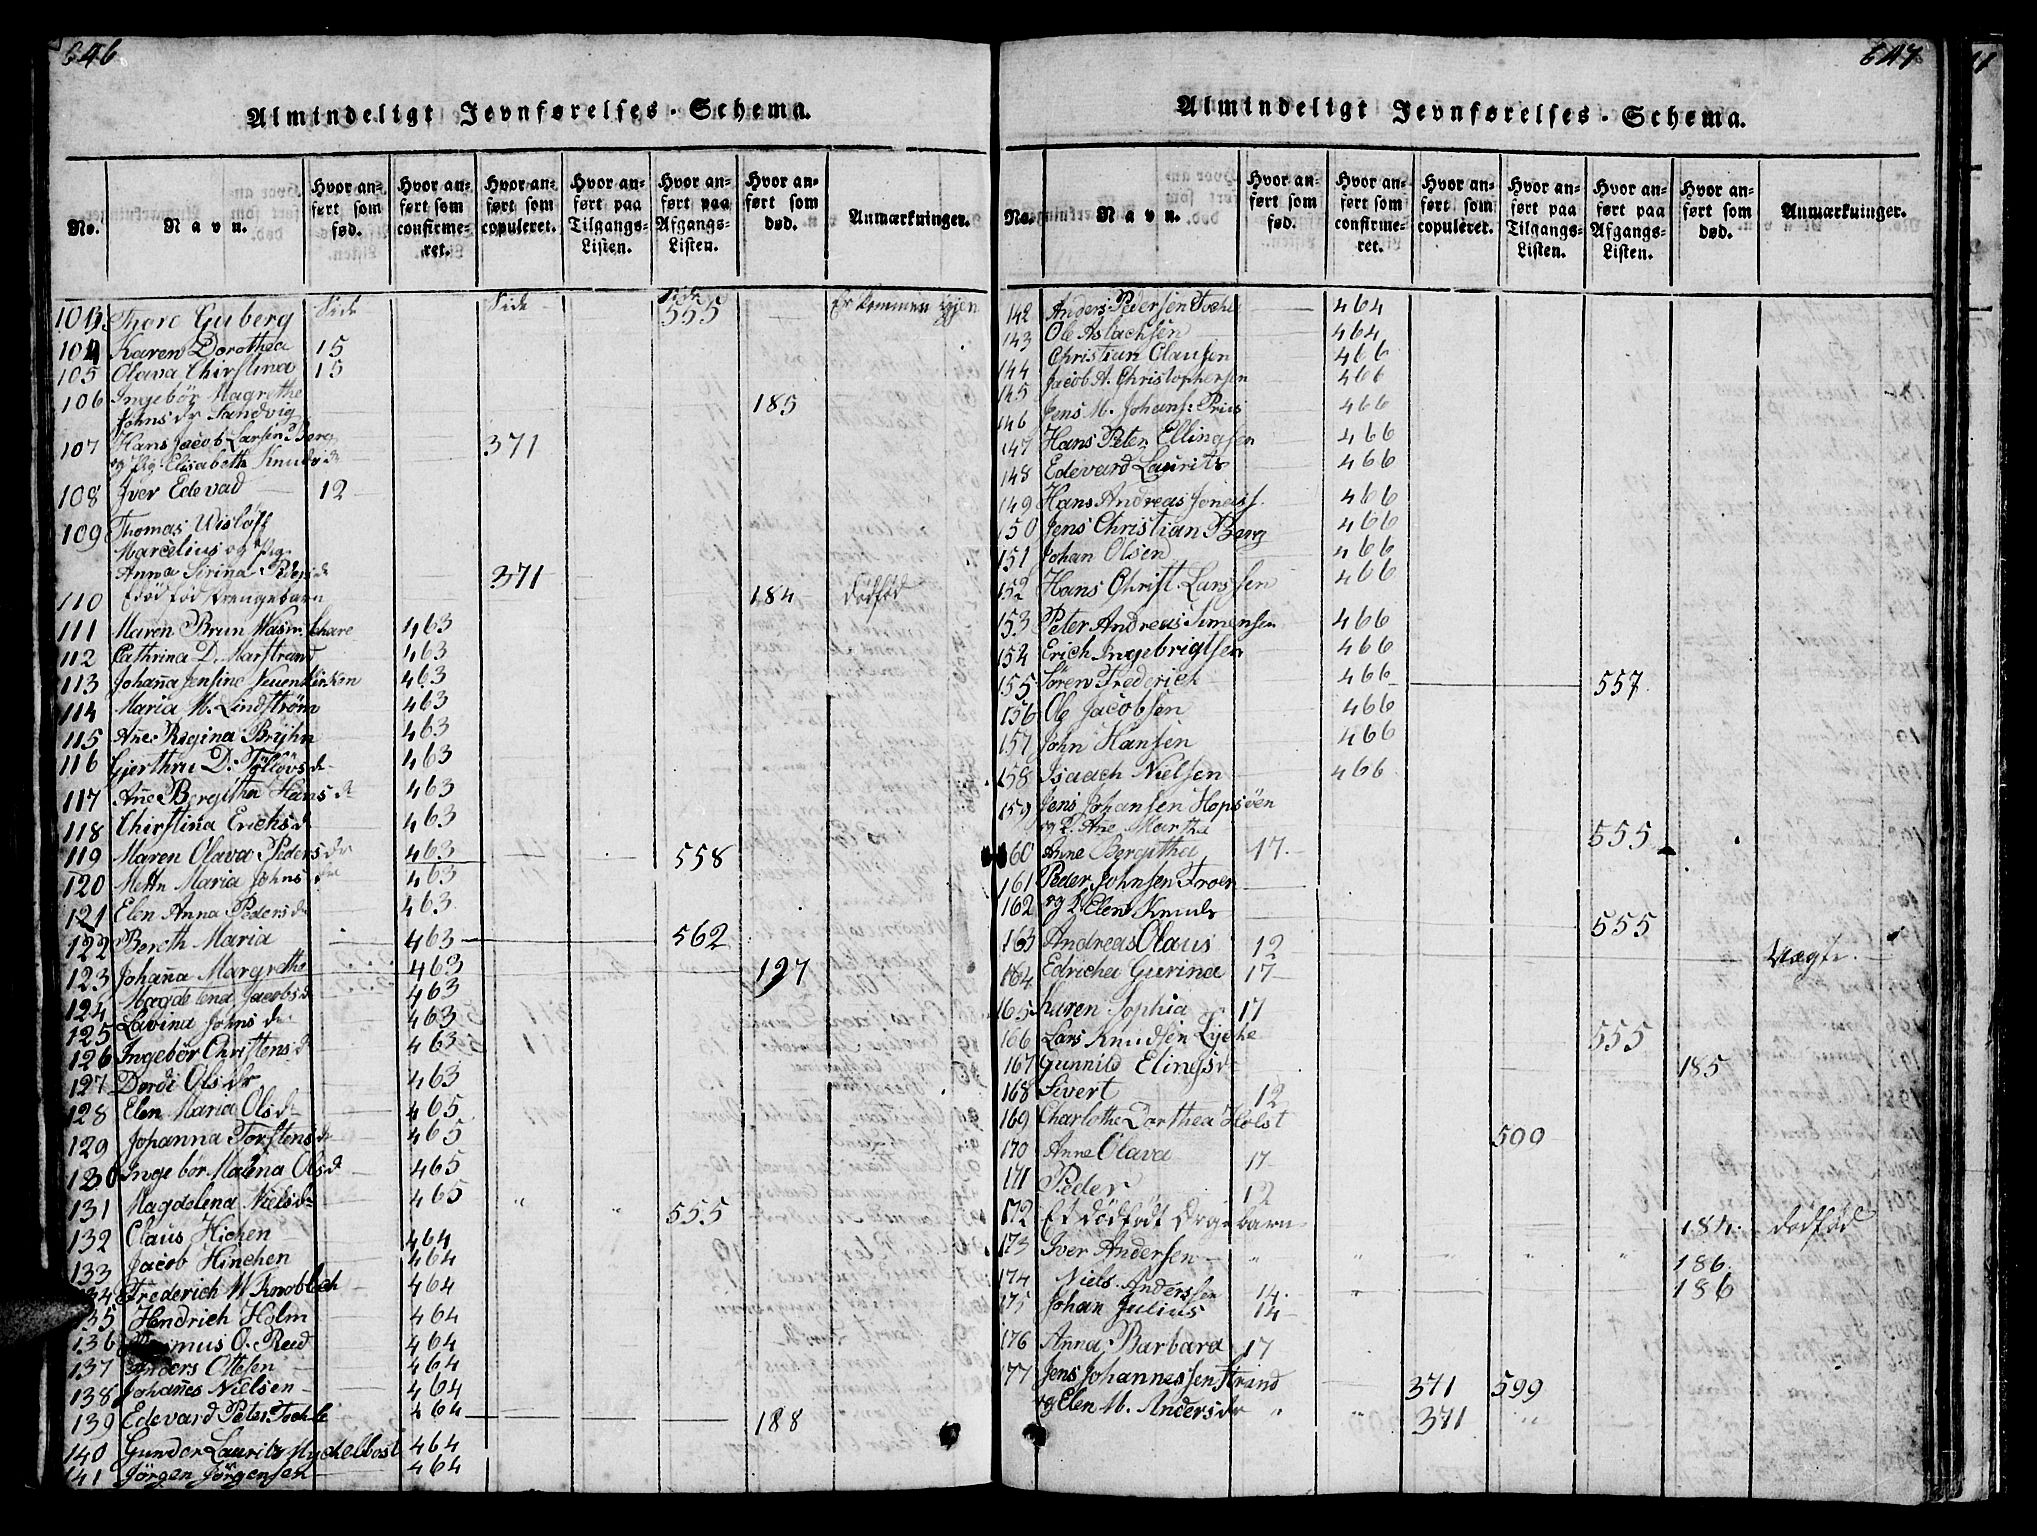 646
Almindeligt Jevnførelses-Schema.
No. Navn. Hvor anført som fød. Hvor anført som confirmeret. Hvor anført som copuleret. Hvor anført paa Tilgangs-Listen. Hvor anført paa Afgangs-Listen. Hvor anført som død. Anmærkninger.
103 Thore Guberg Side Side Side 555 Er kommen igjen
104 Karen Dorothea 15
105 Olava Chirstina 15
106 Ingebör Magrethe
Johnsdr Sandvig 185
107 Hans Jacob Larsen Berg
og Pig Elisabeth Knudsd 371
108 Iver Edevad 12
109 Thomas Wisløff
Marcelius og Pig
Anna Sirina Pedersd 371
110 Død fød Drengebarn 184 dødfød
111 Maren Brun Wasm 463
112 Cathrina D. Marstrand 463
113 Johaña Jensine 463
114 Maria M. Lindstrøm 463
115 Ane Regina Bryhn 463
116 Gjerthru D. Tøllövsd 463
117 Añe Bergitha Hansd 463
118 Chirstina Erichsd 463
119 Maren Olava Pedersdr 463 558
120 Mette Maria Johnsdr 463
121 Elen Anna Pedersd 463
122 Bereth Maria 463 562
123 Johaña Margrethe 463 197
124 Magdelena Jacobsd 463
125 Lavina Johnsd 463
126 Ingebör Christensd 463
127 Dordi Olsdr 463
128 Elen Maria Olsd 465
129 Johanna Torstensd 465
130 Ingebör Malena Olsd 465
131 Magdelena Nielsd 465 555
132 Claus Hichen 464
133 Jacob Hinchen 464
134 Frederich W. Knobloch 464
135 Hendrich Holm 464
136 Rasmus O. Reed 464
137 Anders Ottesen 464
138 Johañes Nielsen 464
139 Edevard Peter Tochle 464 188
140 Gunder Laurits Mychelbost 464
141 Jörgen Jörgensen 464
647
Almindeligt Jevnførelses-Schema.
No. Navn. Hvor anført som fød. Hvor anført som confirmeret. Hvor anført som copuleret. Hvor anført paa Tilgangs-Listen. Hvor anført paa Afgangs-Listen. Hvor anført som død. Anmærkninger.
142 Anders Pedersen Tochle 464
143 Ole Aslachsen 464
144 Christian Olausen 466
145 Jacob A. Christophersen 466
146 Jens M. Johans: Prius 466
147 Hans Peter Ellingsen 466
148 Edevard Laurits 466
149 Hans Andreas Jonass. 466
150 Jens Christian Berg 466
151 Johan Olsen 466
152 Hans Christ. Larssen 466
153 Peter Andreas Simensen 466
154 Erich Ingebrigtsen 466
155 Sören Frederich 466 557
156 Ole Jacobsen 466
157 John Hansen 466
158 Isaach Nielsen 466
159 Jens Johansen Hopsöen
og P. Ane Martha 555
160 Anne Bergitha 17
161 Peder Johnsen Froen
162 og P. Elen Knuds 555
163 Andreas Olaus 12
164 Edricha Gurina 17
165 Karen Sophia 17
166 Lars Knudsen Lyche 555
167 Gunnild Elingsd 185
168 Sivert 12
169 Charlothe Dorthea Holst 500
170 Anne Olava 17
171 Peder 12
172 Et dödfödt Drgebarn 184 dødfød
173 Iver Andersen " " " " " 186
174 Niels Anderssen 14 " 186
175 Johan Julius 14
176 Anna Barbara 17
177 Jens Johannessen Strand 371 599
og Elen M. Andersdr " " 371 "